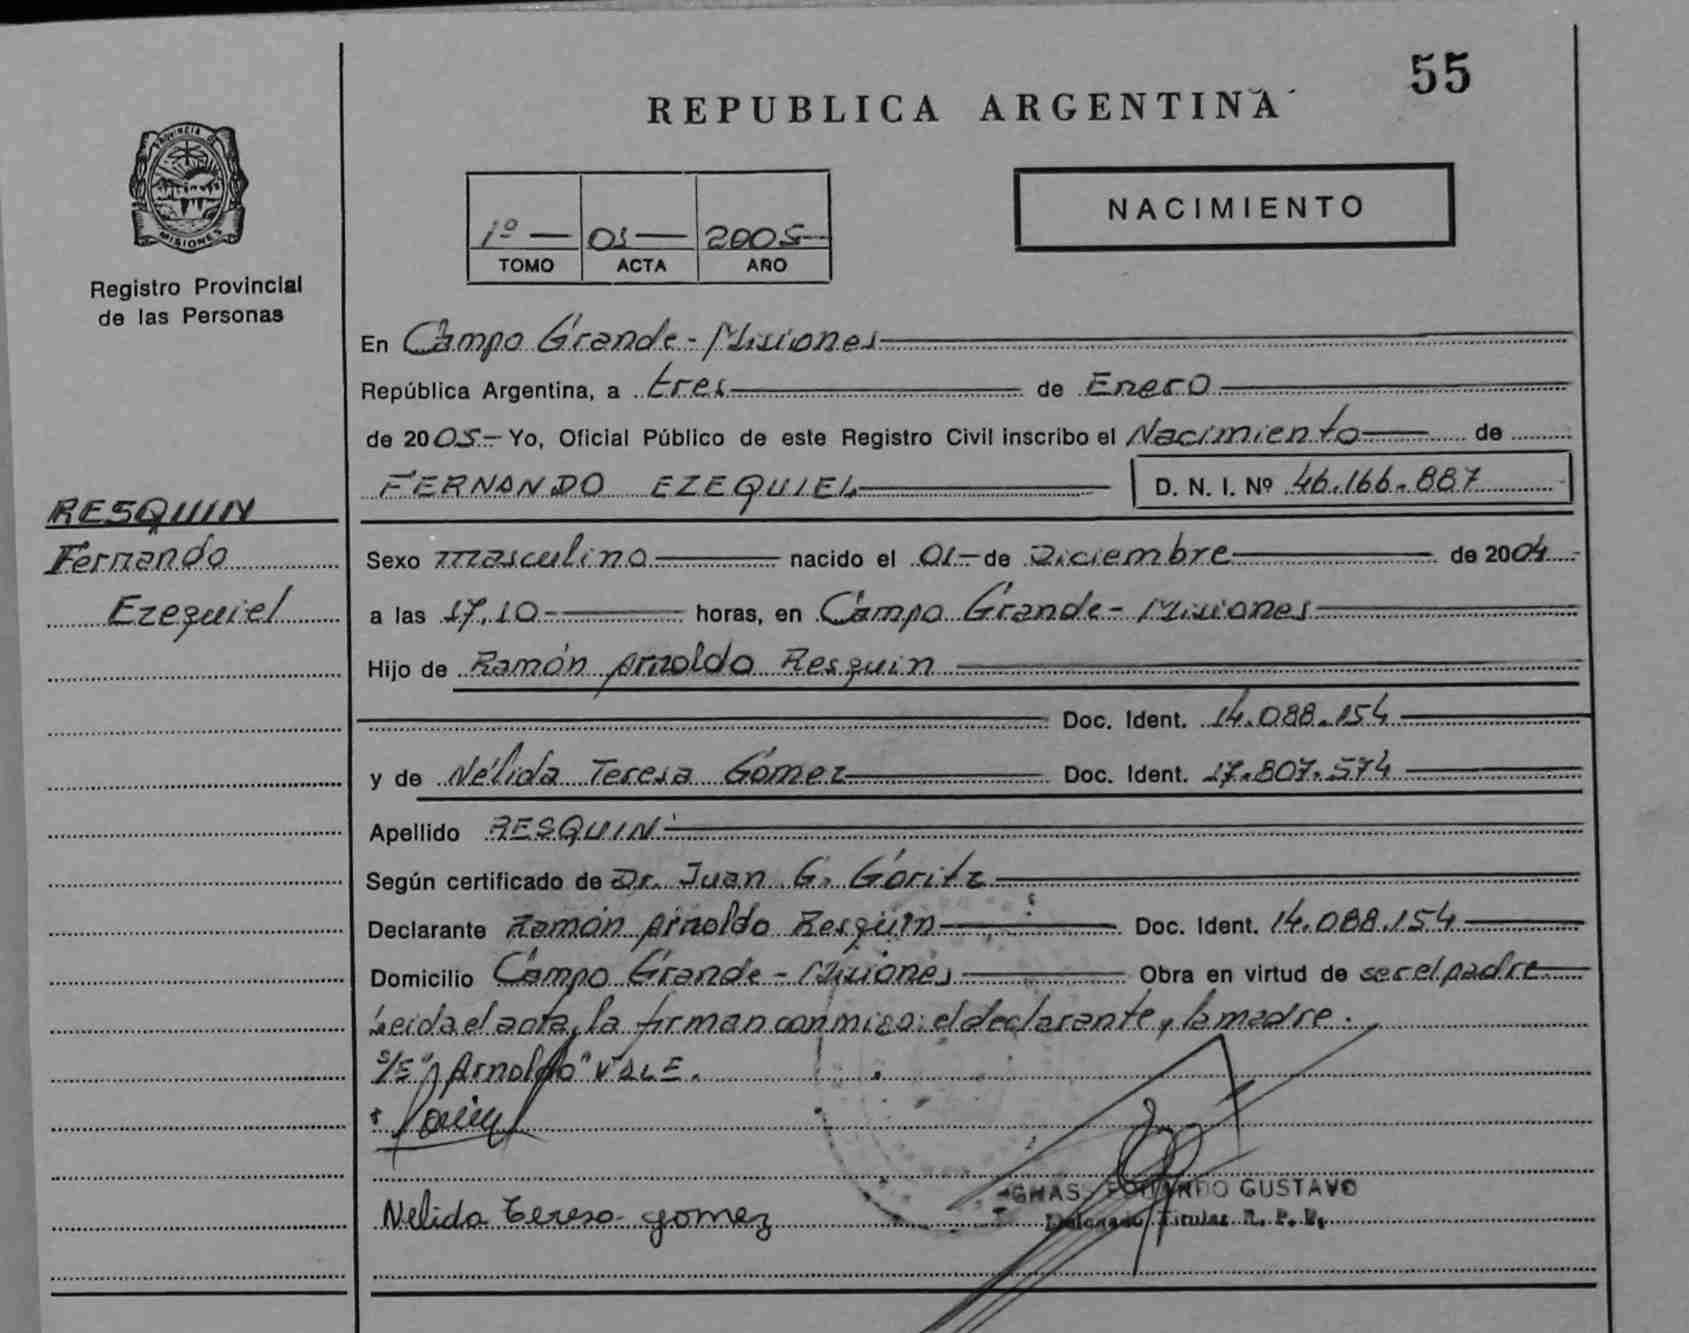 55
REPUBLICA ARGENTINA
PROVINCIA DE
MISIONES
Registro Provincial
de las Personas
1º — 01 — 2005
TOMO ACTA AÑO
NACIMIENTO
En Campo Grande - Misiones
República Argentina, a tres de Enero
de 2005 Yo, Oficial Público de este Registro Civil inscribo el Nacimiento de
FERNANDO EZEQUIEL D. N. I. Nº 46.166.887
RESQUIN
Fernando
Ezequiel
Sexo masculino nacido el 01 de Diciembre de 2004
a las 17,10 horas, en Campo Grande - Misiones
Hijo de Ramón Arnoldo Resquin
Doc. Ident. 14.088.154
y de Nélida Teresa Gómez Doc. Ident. 17.807.574
Apellido RESQUIN
Según certificado de Dr. Juan G. Góritz
Declarante Ramón Arnoldo Resquin Doc. Ident. 14.088.154
Domicilio Campo Grande - Misiones Obra en virtud de ser el padre
Leida el acta, la firman conmigo: el declarante y la madre.
S/E "Arnoldo" VALE.
Nelida Teresa gomez
GUSTAVO
Delegado Titular R. P. P.